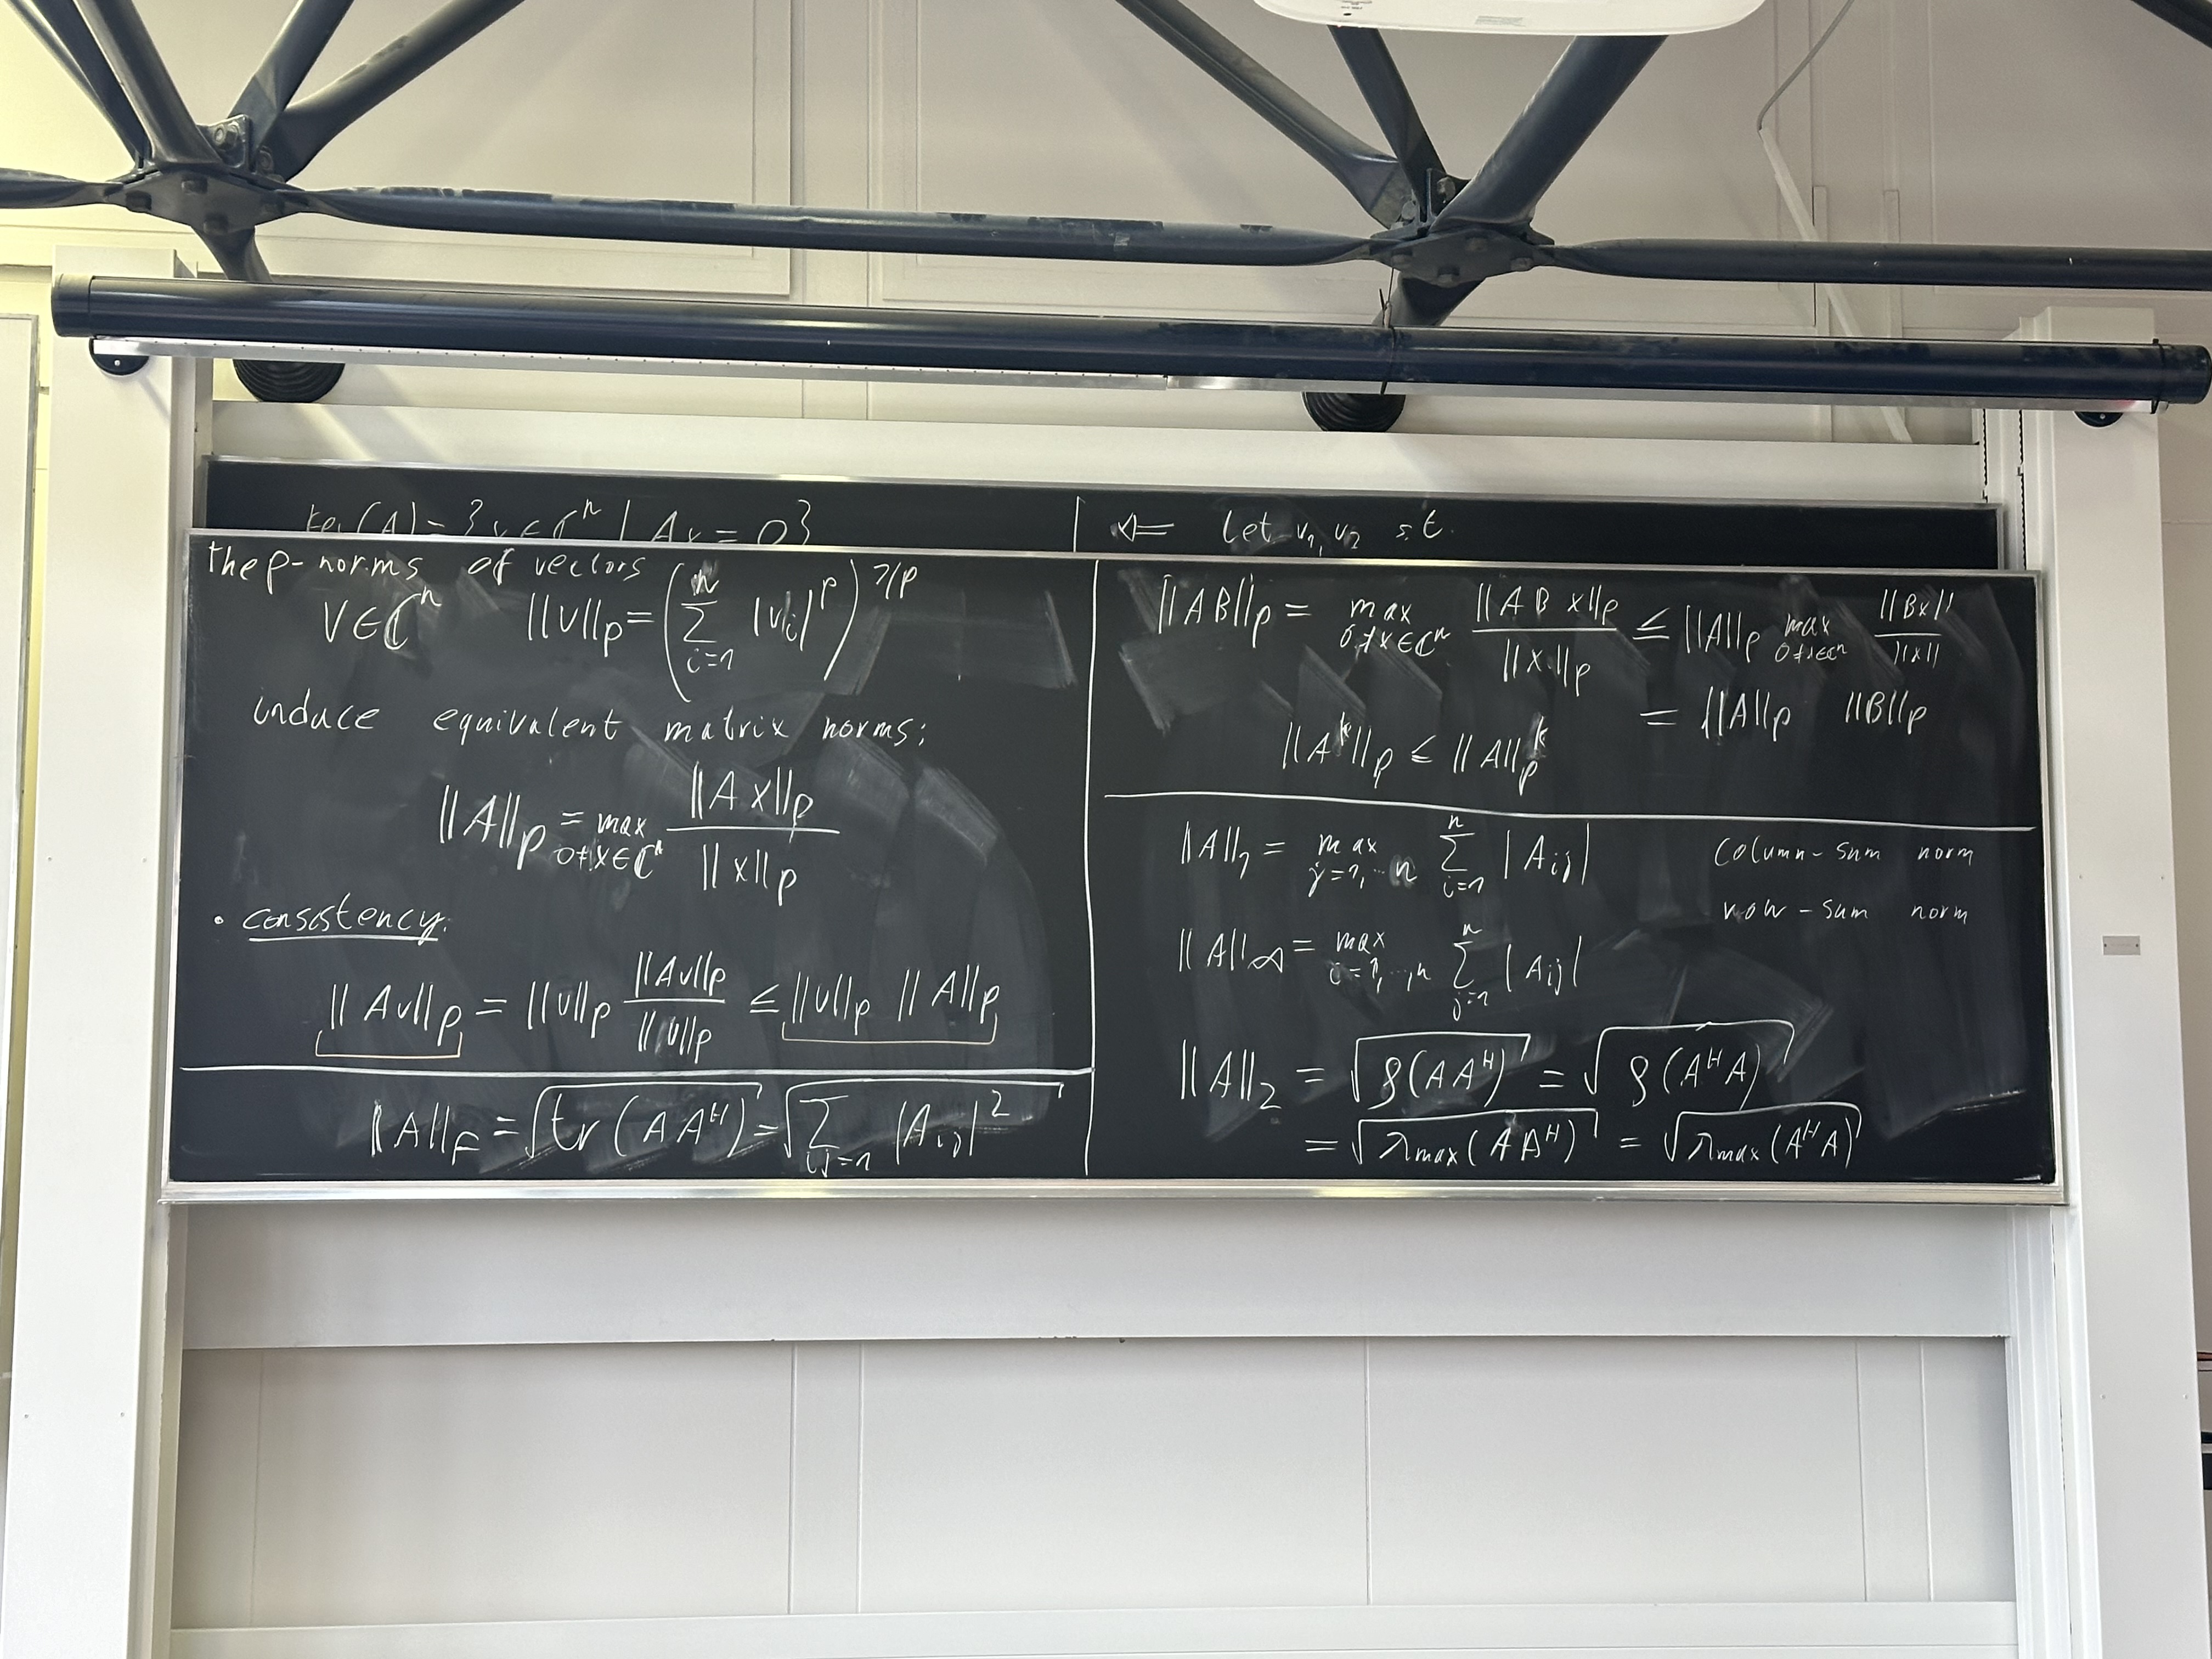 ker(A) = {v ∈ ℂⁿ | Av = 0}
⇐ Let v₁, v₂ s.t.
the p-norms of vectors
v ∈ ℂⁿ ||v||ₚ = (∑_{i=1}^{n} |vᵢ|^p)^{1/p}
induce equivalent matrix norms:
||A||ₚ = max_{0≠x∈ℂⁿ} ||Ax||ₚ / ||x||ₚ
• consistency:
||Av||ₚ = ||v||ₚ ||Av||ₚ / ||v||ₚ ≤ ||v||ₚ ||A||ₚ
||A||_F = √(tr(AA^H)) = √(∑_{i,j=1} |A_{ij}|²)
||AB||ₚ = max_{0≠x∈ℂⁿ} ||ABx||ₚ / ||x||ₚ ≤ ||A||ₚ max_{0≠x∈ℂⁿ} ||Bx|| / ||x||
= ||A||ₚ ||B||ₚ
||A^k||ₚ ≤ ||A||ₚ^k
||A||₁ = max_{j=1,…n} ∑_{i=1}^{n} |A_{ij}| column-sum norm
row-sum norm
||A||_∞ = max_{i=1,…,n} ∑_{j=1}^{n} |A_{ij}|
||A||₂ = √(ρ(AA^H)) = √(ρ(A^H A))
= √(λ_max(AA^H)) = √(λ_max(A^H A))